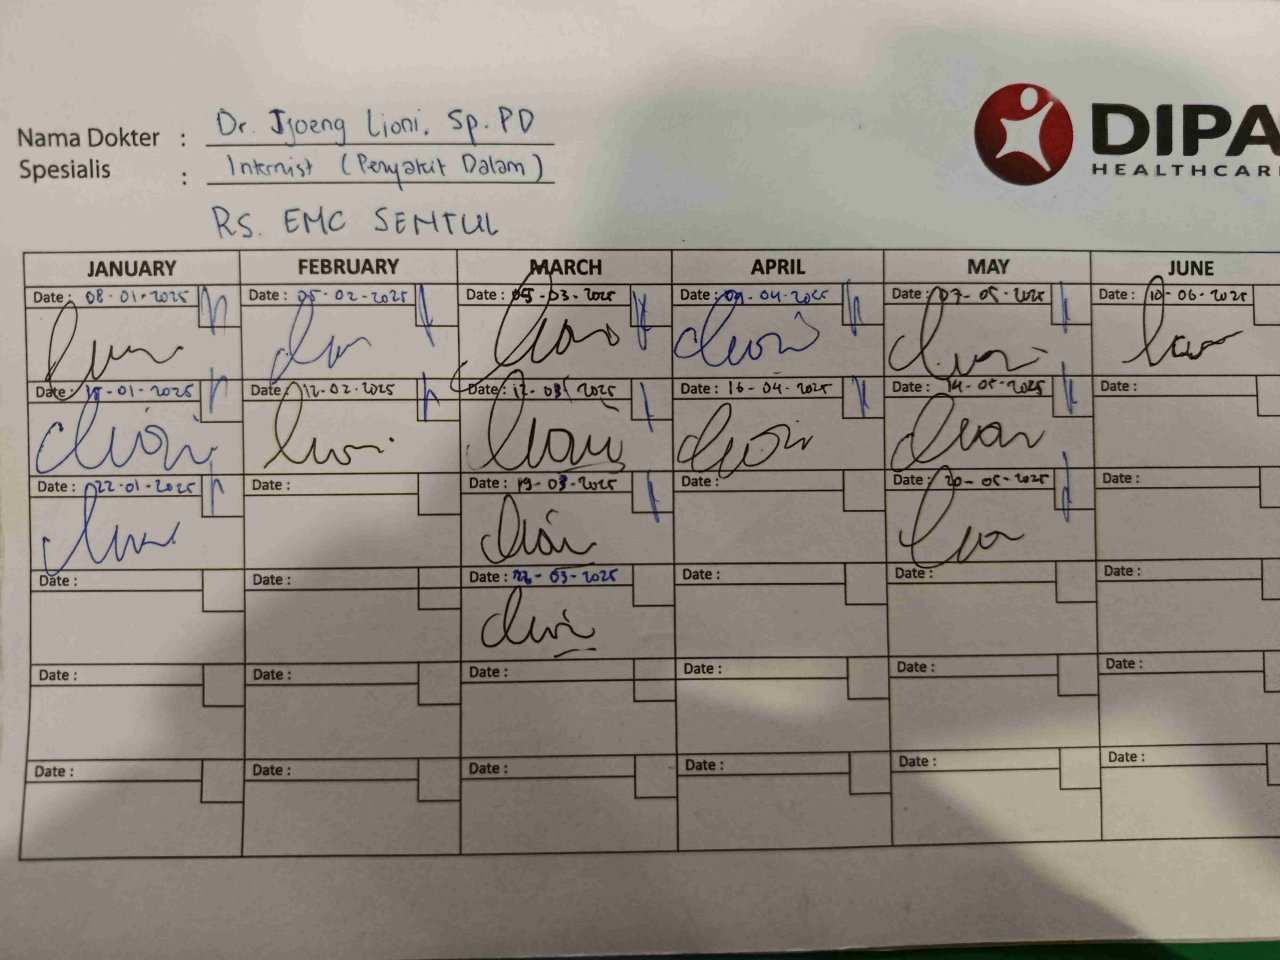 Nama Dokter : Dr. Jjoeng Lioni, Sp.PD
Spesialis : Internist (Penyakit Dalam)
RS. EMC SENTUL
DIPA
HEALTHCAR
JANUARY FEBRUARY MARCH APRIL MAY JUNE
Date : 08-01-2025 Date : 05-02-2025 Date : 05-03-2025 Date : 09-04-2025 Date : 07-05-2025 Date : 10-06-2025
Date : 15-01-2025 Date : 12-02-2025 Date : 12-03-2025 Date : 16-04-2025 Date : 14-05-2025 Date :
Date : 22-01-2025 Date : Date : 19-03-2025 Date : Date : 20-05-2025 Date :
Date : Date : Date : 22-03-2025 Date : Date : Date :
Date : Date : Date : Date : Date : Date :
Date : Date : Date : Date : Date : Date :